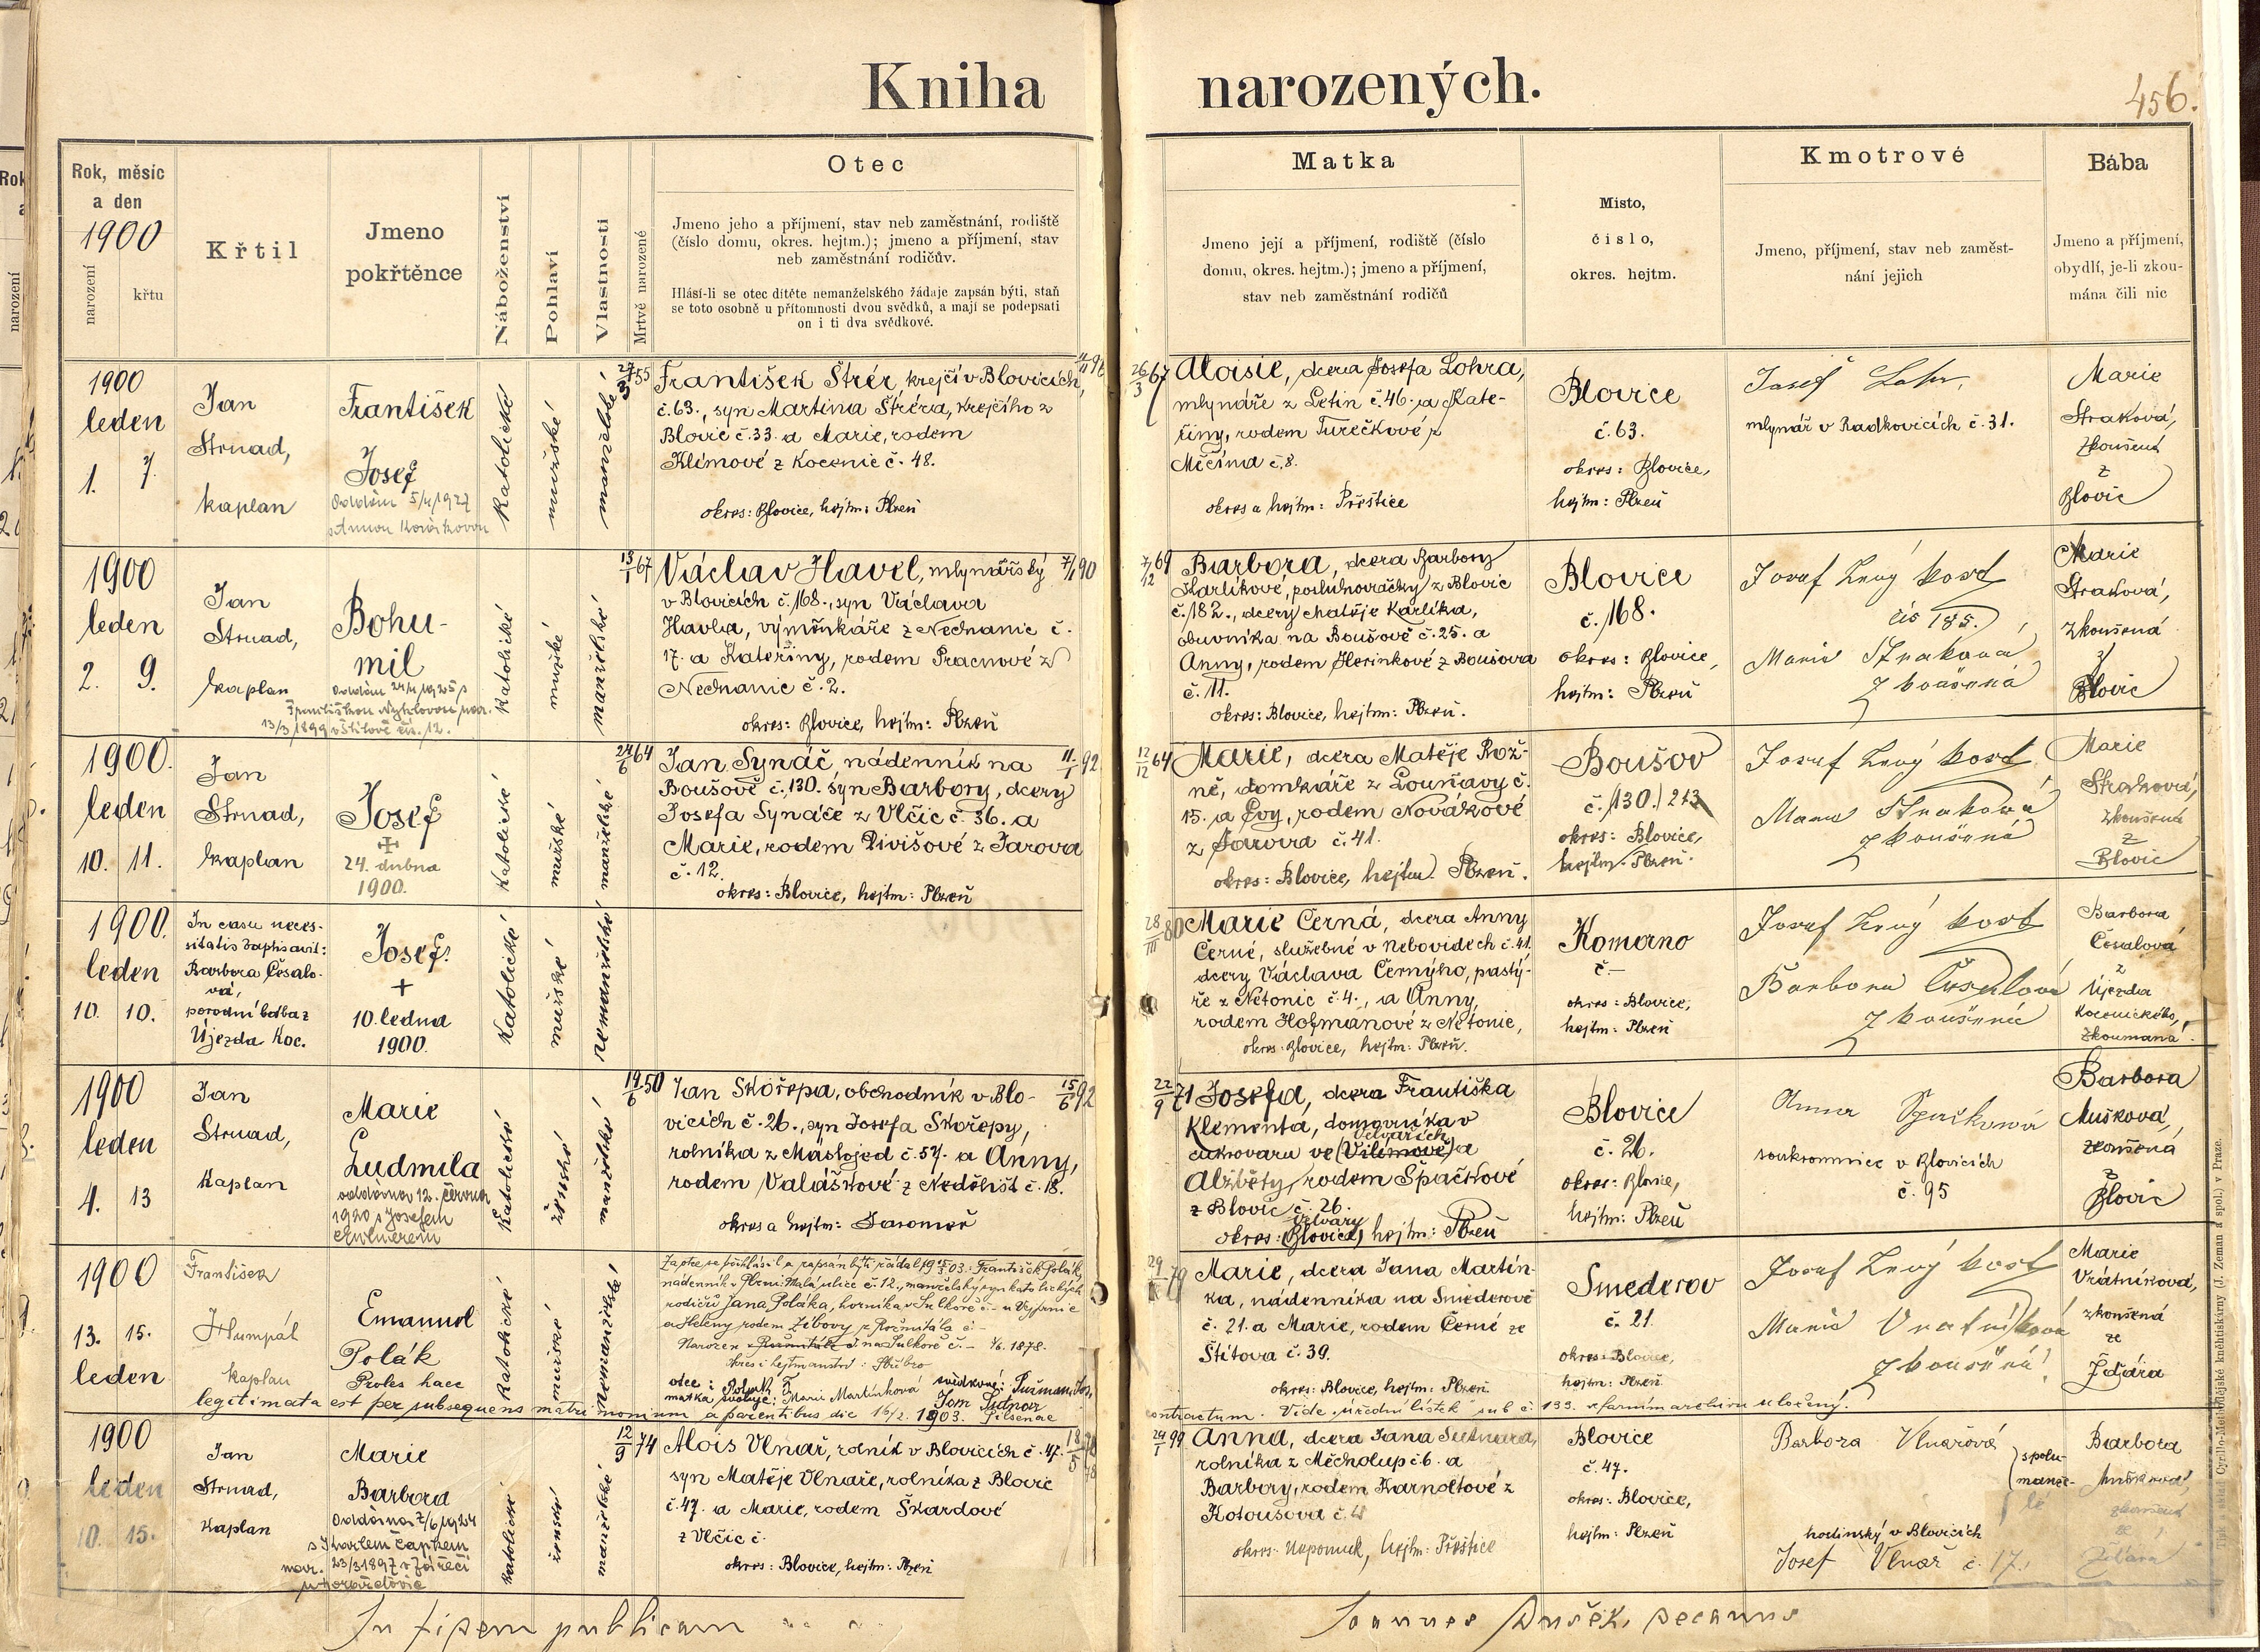 Kniha narozených.
456.
Rok, měsíc
a den
1900
narození
křtu
Křtil
Jmeno
pokřtěnce
Náboženství
Pohlaví
Vlastnosti
Mrtvě narozené
Otec
Jmeno jeho a příjmení, stav neb zaměstnání, rodiště
(číslo domu, okres. hejtm.); jmeno a příjmení, stav
neb zaměstnání rodičův.
Hlásí-li se otec dítěte nemanželského žádaje zapsán býti, staň
se toto osobně u přítomnosti dvou svědků, a mají se podepsati
on i ti dva svědkové.
Matka
Jmeno její a příjmení, rodiště (číslo
domu, okres. hejtm.); jmeno a příjmení,
stav neb zaměstnání rodičů
Misto,
číslo,
okres. hejtm.
Kmotrové
Jmeno, příjmení, stav neb zaměst-
nání jejich
Bába
Jmeno a příjmení,
obydlí, je-li zkou-
mána čili nic
1900
leden
1. 7.
Jan
Strnad,
kaplan
František
Josef
Oddán 5/4 1927
katolické
mužské
manželské
27/3 55
František Štrér, krejčí v Blovicích,
č. 63., syn Martina Štréra, krejčího z
Blovic č. 33. a Marie, rodem
Klímové z Kocenic č. 48.
okres: Blovice, hejtm: Plzeň
26/3 67
Aloisie, dcera Josefa Lohra,
mlynáře z Letin č. 46. a Kate-
řiny, rodem Turečkové z
Měčína č. 8.
okres a hejtm: Přeštice
Blovice
č. 63.
okres: Blovice,
hejtm: Plzeň
Josef Lohr,
mlynář v Radkovicích č. 31.
Marie
Straková,
zkoušená
z
Blovic
1900
leden
2. 9.
Jan
Strnad,
kaplan
Bohu-
mil
13/3 1899 v Štítově čís. 12.
katolické
mužské
manželské
13/1 67
Václav Havel, mlynářský 7/1 90
v Blovicích č. 168., syn Václava
Havla, výměnkáře z Nechanic č.
17. a Kateřiny, rodem Pracnové z
Nechanic č. 2.
okres: Blovice, hejtm: Plzeň
7/12 69
Barbora, dcera Barbory
Karlíkové, posluhovačky z Blovic
č. 182., dcery Matěje Karlíka,
obuvníka na Boušově č. 25. a
Anny, rodem Herinkové z Boušova
č. 11.
okres: Blovice, hejtm: Plzeň.
Blovice
č. 168.
okres: Blovice,
hejtm: Plzeň
Josef Levý kost
čís 185.
Marie Straková
zkoušená
Marie
Straková,
zkoušená
z
Blovic
1900.
leden
10. 11.
Jan
Strnad,
kaplan
Josef
24. dubna
1900.
katolické
mužské
manželské
24/6 64
Jan Synáč, nádenník na 11/1 92
Boušově č. 130. syn Barbory, dcery
Josefa Synáče z Vlčic č. 36. a
Marie, rodem Divišové z Jarova
č. 12.
okres: Blovice, hejtm: Plzeň
12/12 64
Marie, dcera Matěje Rož-
ně, domkáře z Louňavy č.
15. a Evy, rodem Novákové
z Jarova č. 41.
okres: Blovice, hejtm. Plzeň.
Boušov
č. 130. 213
okres: Blovice,
hejtm. Plzeň.
Josef Levý kost
Marie Straková
zkoušená
Marie
Straková,
zkoušená
z
Blovic
1900.
leden
10. 10.
In casu neces-
sitatis baptisavit:
Barbora Česalo-
vá,
porodní bába z
Újezda Koc.
Josef.
+
10. ledna
1900.
katolické
mužské
nemanželské
28/III 80
Marie Černá, dcera Anny
Černé, služebné v Nebovidech č. 41.
dcery Václava Černýho, pastý-
ře z Netonic č. 4., a Anny,
rodem Hofmanové z Netonic,
okres: Blovice, hejtm: Plzeň.
Komorno
č. –
okres: Blovice,
hejtm: Plzeň
Josef Levý kost
Barbora Česalová
zkoušená
Barbora
Česalová
z
Újezda
Kocenického,
zkoumaná.
1900
leden
4. 13
Jan
Strnad,
kaplan
Marie
Ludmila
oddána 12. června
1920 s Josefem
katolické
ženské
manželské
19/6 50
Jan Skořepa, obchodník v Blo- 15/6 92
vicích č. 26., syn Josefa Skořepy,
rolníka z Máslojed č. 57. a Anny,
rodem Valáškové z Nedělišt č. 18.
okres a hejtm: Jaroměř
22/9 71
Josefa, dcera Františka
Klementa, domovníka v
Velvarích
cukrovaru ve (Vilímově) a
Alžběty, rodem Špačkové
z Blovic č. 26.
Velvary
okres: (Blovice), hejtm: Plzeň
Blovice
č. 26.
okres: Blovice,
hejtm: Plzeň
Anna Špačková
soukromnice v Blovicích
č. 95
Barbora
Mušková,
zkoušená
z
Blovic
1900
13. 15.
leden
František
Humpál
kaplan
Emanuel
Polák
Proles haec
legitimata est per subsequens matrimonium a parentibus die 16/2. 1903. Pilsenae
contractum. Vide úřední lístek sub č. 133. v farním archivu uložený.
katolické
mužské
nemanželské
Za otce se přihlásil a zapsán býti žádal 1903: František Polák,
nádenník v Plzni Malá ulice č. 12., manželský syn katolických
rodičů Jana Poláka, horníka v Sulkově č. – u Vejprnic
a Heleny rodem Zíbovy z Rožmitála č –
okres i hejtmanství: Stříbro
otec: Polák F. svědkové:
matka svoluje: Marie Martínková
29/ 79
Marie, dcera Jana Martín-
ka, nádenníka na Smederově
č. 21. a Marie, rodem Černé ze
Štítova č. 39.
okres: Blovice, hejtm: Plzeň
Smederov
č. 21.
okres: Blovice,
hejtm: Plzeň
Josef Levý kost
Marie Vratníková
zkoušená
Marie
Vrátníková,
zkoušená
ze
Ždára
1900
leden
10. 15.
Jan
Strnad,
kaplan
Marie
Barbora
Oddána 7/6 1924
s Karlem Čapkem
nar. 23/3 1897 v Záříčí
katolické
ženské
manželské
12/9 74
Alois Vlnař, rolník v Blovicích č. 47.
syn Matěje Vlnaře, rolníka z Blovic
č. 47. a Marie, rodem Škardové
z Vlčic č.
okres: Blovice, hejtm: Plzeň
Anna, dcera Jana Sutnara,
rolníka z Měcholup č. 6. a
Barbory, rodem Karnoltové z
Kotousova č.
okres: Nepomuk, hejtm: Přeštice
Blovice
č. 47.
okres: Blovice,
hejtm: Plzeň
Barbora Vlnařová
spolu-
manže-
lé
hodinský v Blovicích
Josef Vlnař č. 17.
Barbora
Mušková,
zkoušená
ze
Ždára
In fidem publicam
Joannes Dušek, decanus